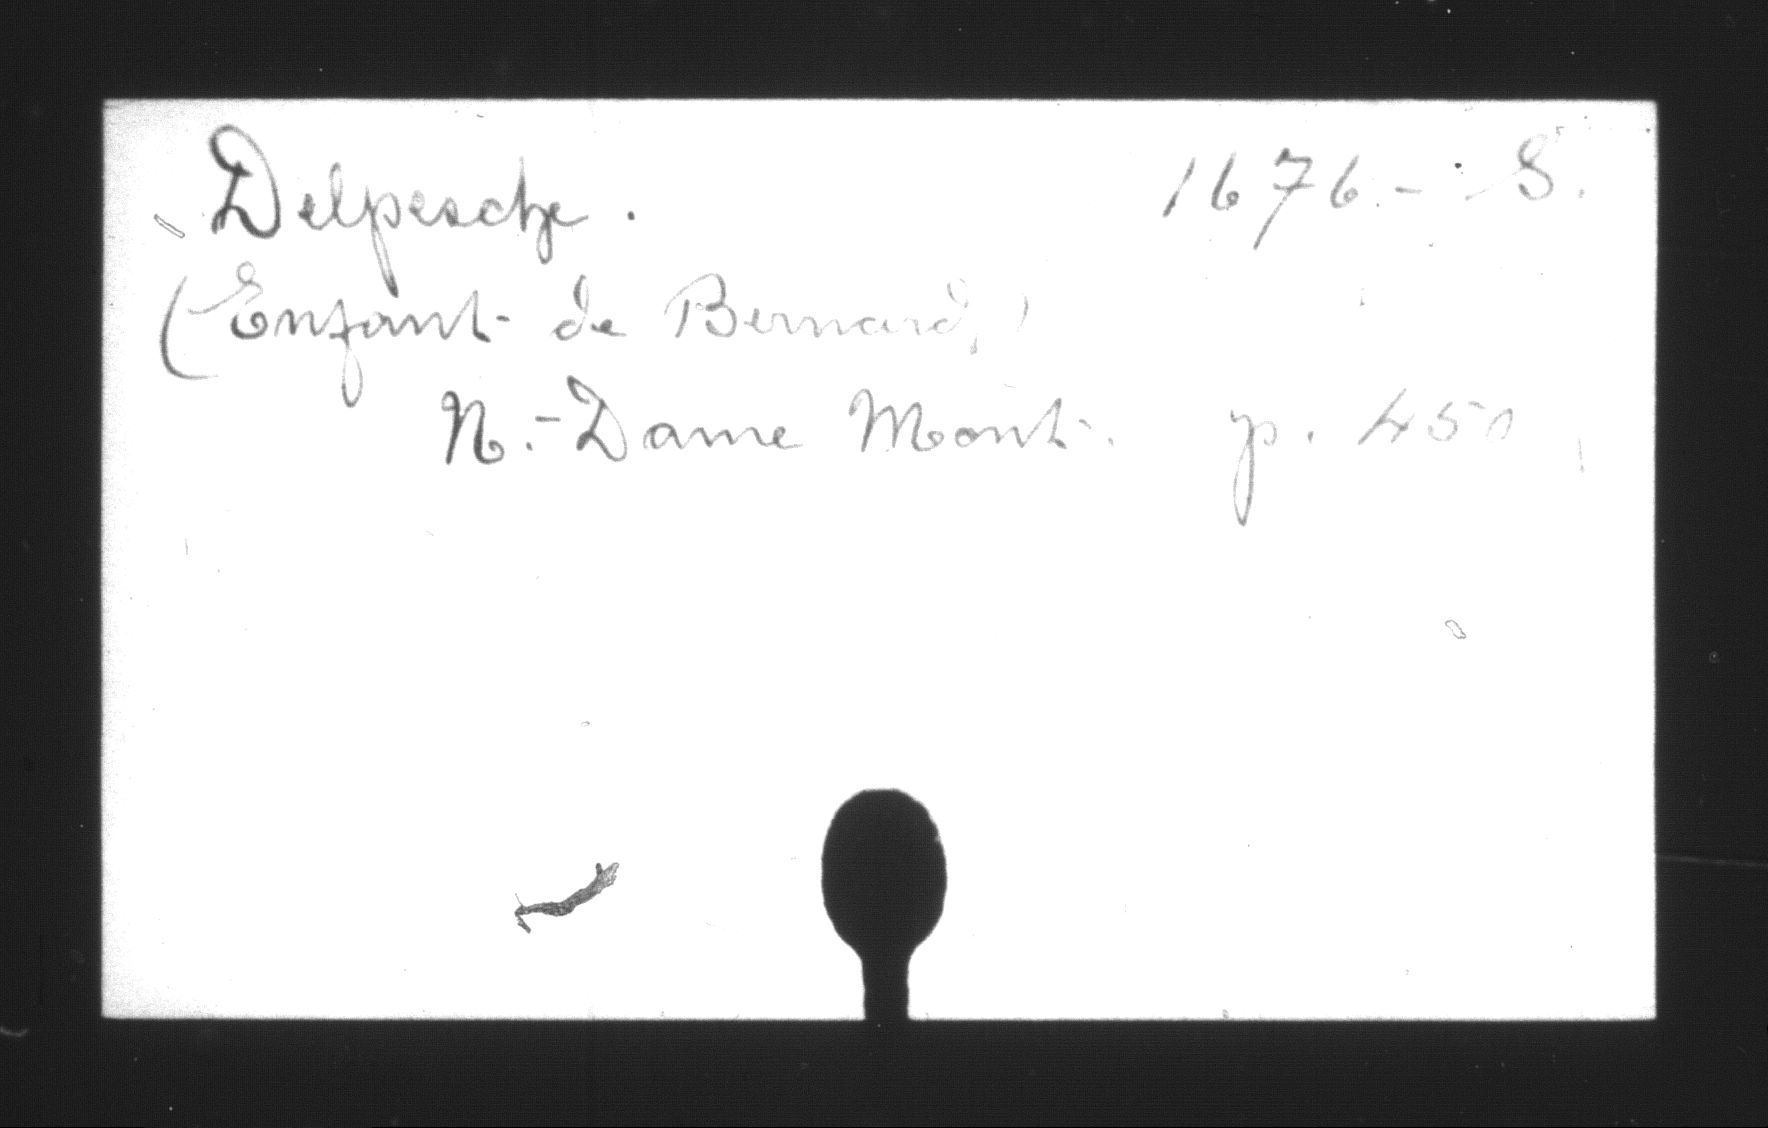 Delpesche. 1676.- S.
(Enfant de Bernard,)
N.-Dame Mont. p. 450